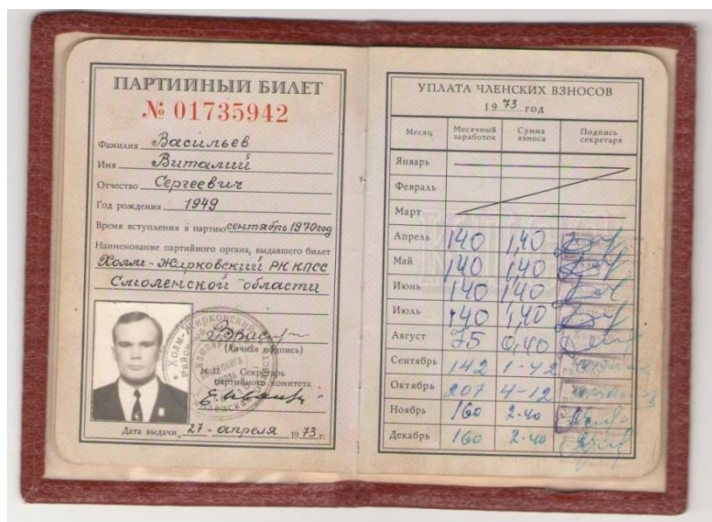 ПАРТИЙНЫЙ БИЛЕТ
№ 01735942
Фамилия Васильев
Имя Виталий
Отчество Сергеевич
Год рождения 1949
Время вступления в партию сентябрь 1970 год
Наименование партийного органа, выдавшего билет
Холм-Жирковский РК КПСС
Смоленской области
(личная подпись)
М. П. Секретарь
партийного комитета
Дата выдачи 27 - апреля 1973 г.
УПЛАТА ЧЛЕНСКИХ ВЗНОСОВ
1973 год
Месяц Месячный заработок Сумма взноса Подпись секретаря
Январь
Февраль
Март
Апрель 140 1,40
Май 140 1,40
Июнь 140 1,40
Июль 140 1,40
Август 75 0,40
Сентябрь 142 1-42
Октябрь 207 4-12
Ноябрь 160 2-40
Декабрь 160 2-40